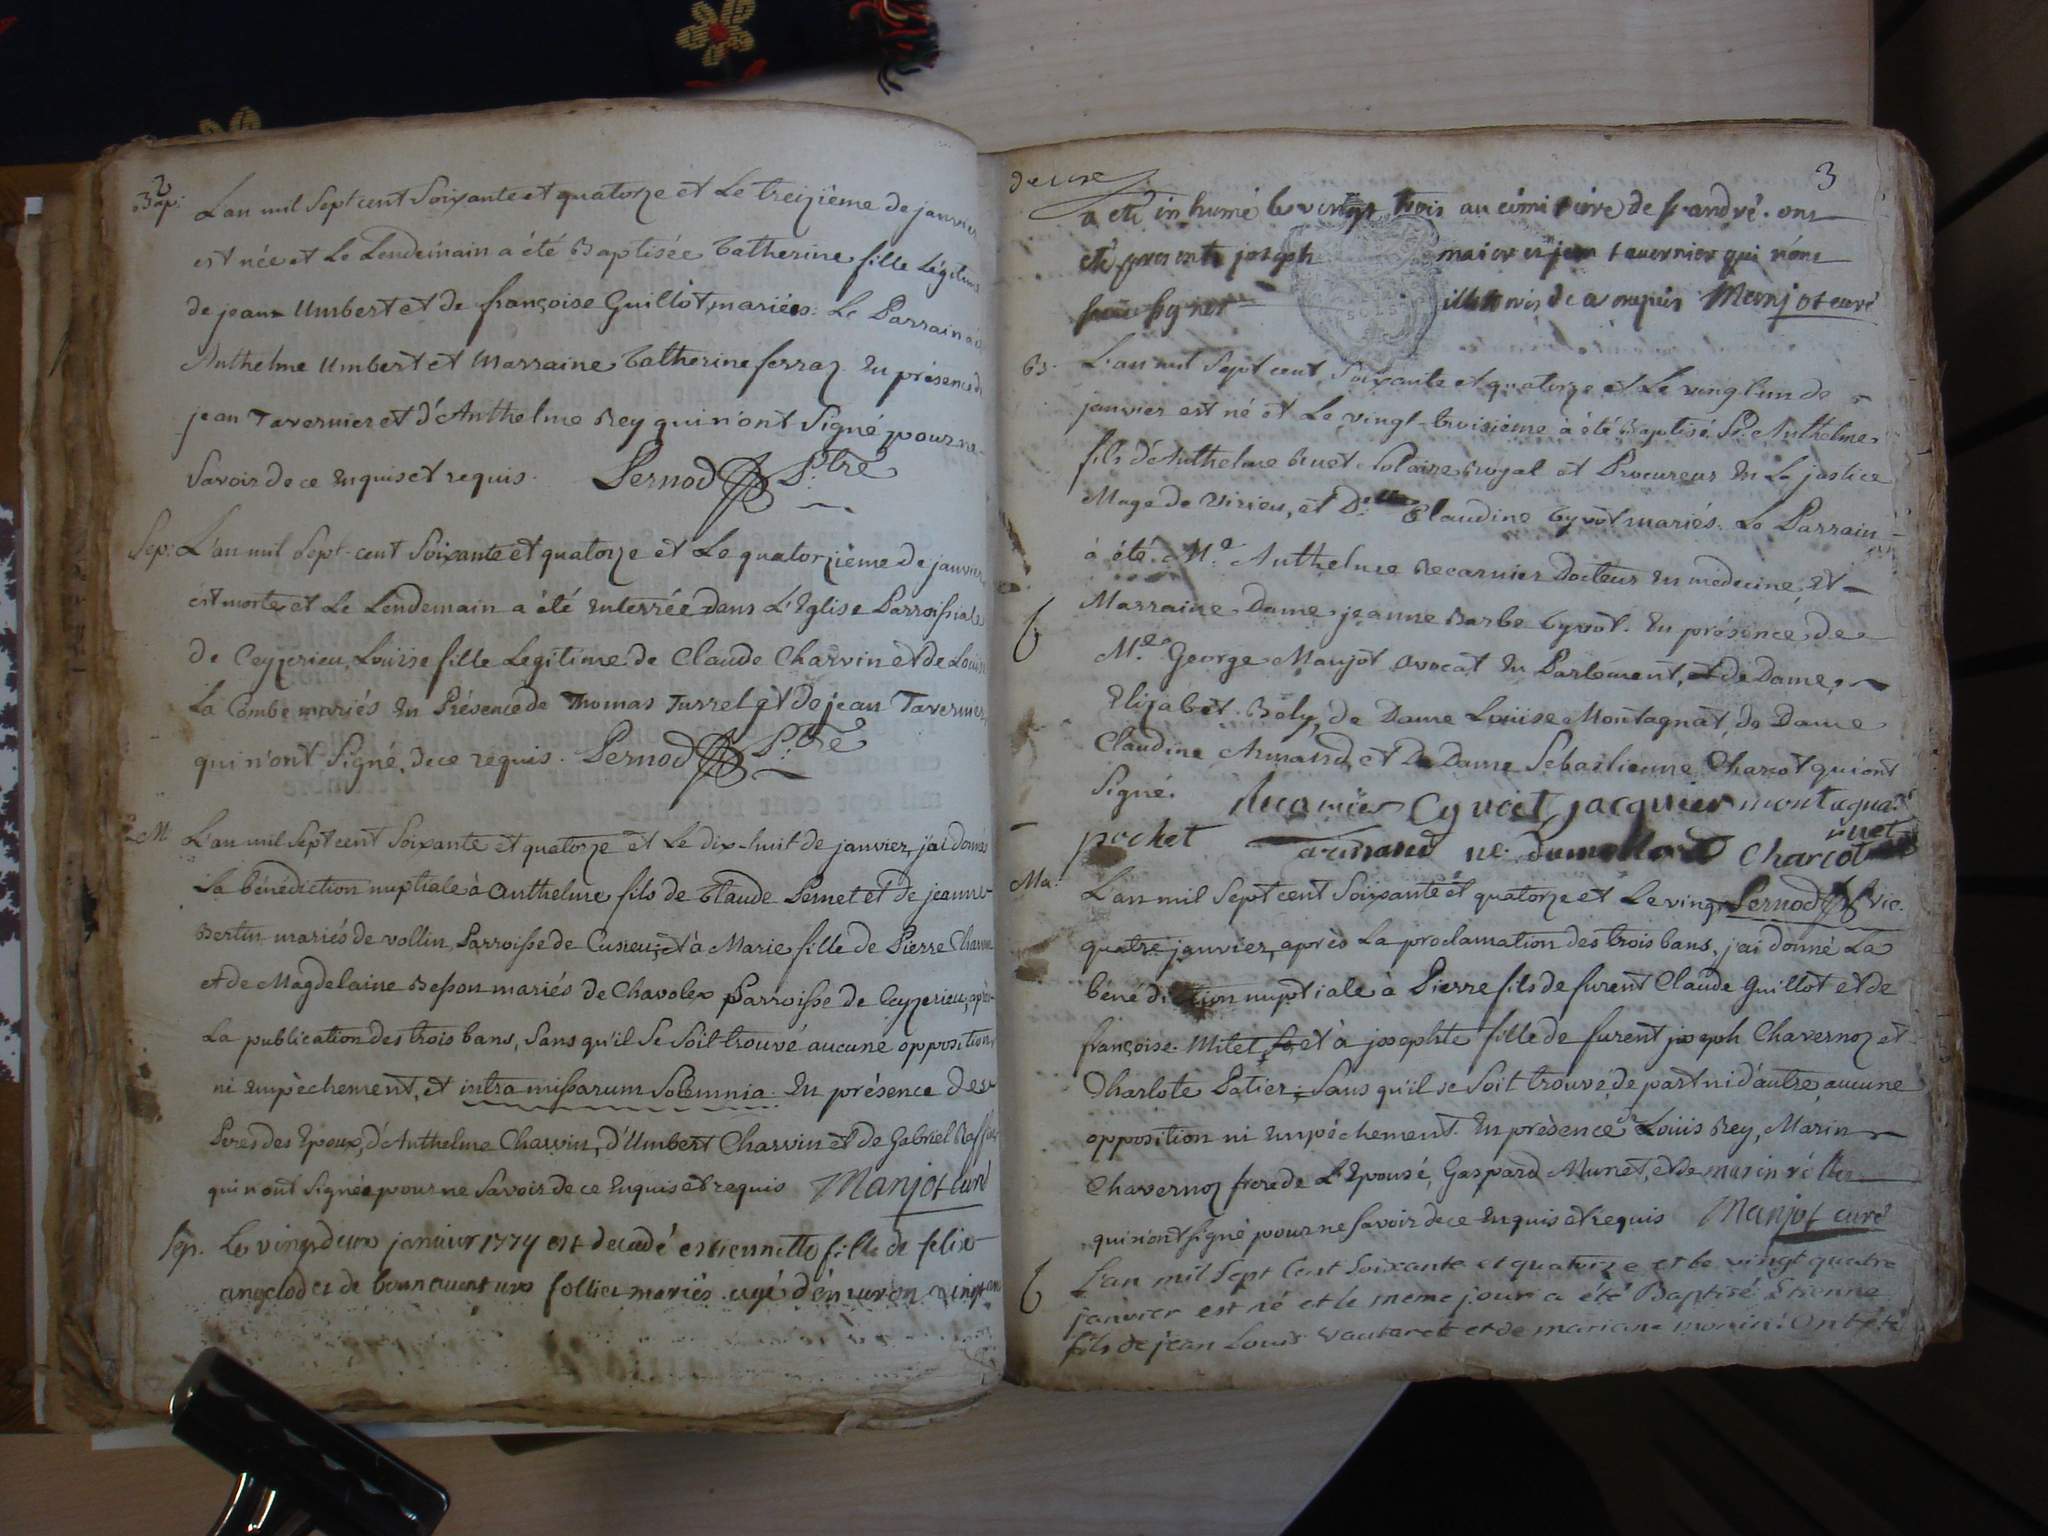 2
Bap: L'an mil Sept cent Soixante et quatorze et Le treizième de janvier
est née et Le Lendemain a été Baptisée Catherine fille Légitime
de jean Umbert et de françoise Guillot mariés: Le Parrain a été
Anthelme Umbert et Marraine Catherine ferraz. En présence de
jean Tavernier et d'Anthelme Rey qui n'ont Signé pour ne
Savoir de ce Enquis et requis. Pernod P.tre
Sep: L'an mil Sept-cent Soixante et quatorze et Le quatorzième de janvier
est morte et Le Lendemain a été Enterrée dans L'Eglise Parroissiale
de Ceyzerieu, Loüise fille Legitime de Claude Charvin et de Louise
La Combe mariés En Présence de Thomas Turrel et de jean Tavernier
qui n'ont Signé, de ce requis. Pernod P.tre
M: L'an mil Sept cent Soixante et quatorze et Le dix-huit de janvier, j'ai donné
la bénédiction nuptiale à Anthelme fils de Claude Pernet et de jeanne
Bertin mariés de vollin, Parroisse de et à Marie fille de Pierre
et de Magdelaine Besson mariés de Chavolex Parroisse de Ceyzerieu, après
La publication des trois bans, Sans qu'il Se Soit trouvé aucune opposition
ni Empèchement, et intra missarum Solemnia. En présence des
Peres des Epoux, d'Anthelme Charvin, d'Umbert Charvin et de Gabriel
qui n'ont Signé pour ne Savoir de ce Enquis et requis Manjot curé
Sep. Le vingt deux janvier 1774 est decedé estiennette fille de felix
anclod et de bonnaventure follict mariés agé d'environ vingt ans
deuxe 3
a eté inhumé le vingt trois au cimitiere de st andré. ont
eté presents joseph maior et jean tavernier qui n'ont
sceu signer illitorés de ce enquis Manjot curé
B. L'an mil Sept cent Soixante et quatorze et Le vingt un de
janvier est né et Le vingt-troisième à été Baptisé Sr. Anthelme
fils d'Anthelme Royal et Procureur En La justice
Mage de Virieu, et D.lle Claudine Cyvot mariés. Le Parrain
à été M.e Anthelme Recamier Docteur En médecine, Et
Marraine Dame jeanne Barbe Cyvot. En présence de
M.e George Manjot Avocat En Parlement, et de Dame
Elizabet Boly, de Dame Loüise Montagnat, de Dame
Claudine Armand, et De Dame Sebastienne Charcot qui ont
Signé. Recamier Cyvoct jacquier montagnat
pochet armand charcot
Ma: L'an mil Sept cent Soixante et quatorze et Le vingt Pernod Vic.
quatre janvier, après La proclamation des trois bans, j'ai donné La
bénédiction nuptiale à Pierre fils de furent Claude Guillot et de
françoise Mitel, et à josephte fille de furent joseph Chavernoz et
Charlote Patier; Sans qu'il se Soit trouvé de part ni d'autre aucune
opposition ni Empèchement. En prèsence de Loüis Rey, Marin
Chavernoz frere de L'Epousé, Gaspard Munet, et de marin
qui n'ont signé pour ne Savoir de ce Enquis et requis Manjot curé
L'an mil Sept Cent Soixante et quatorze et le vingt quatre
janvier est né et le meme jour a été Baptisé Etienne
fils de jean Louis Vautaret et de mariane morin: Ont été